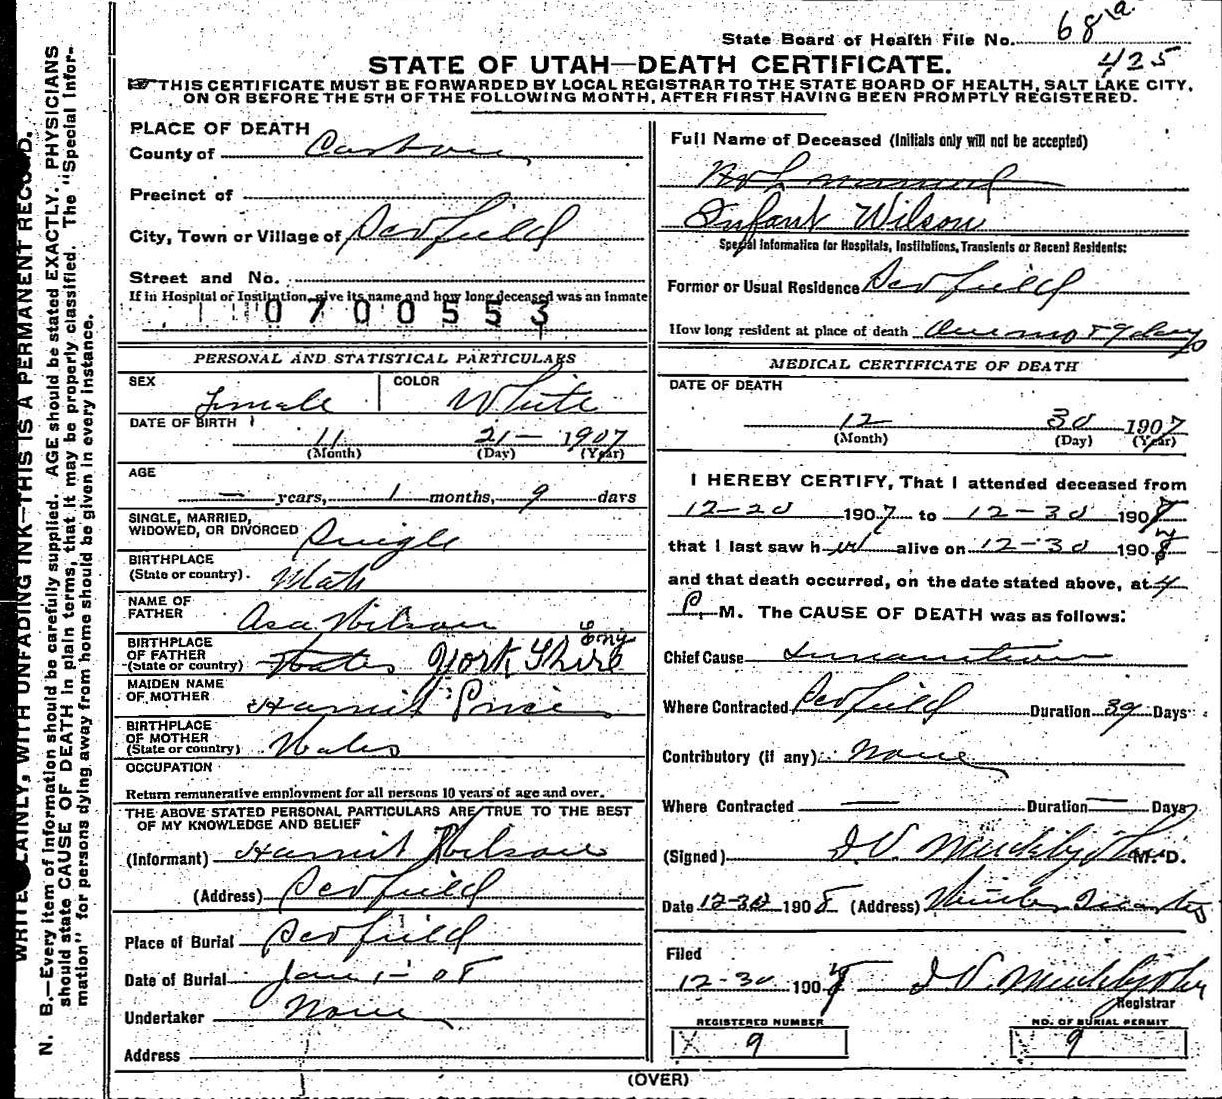 State Board of Health File No. 68a
425
STATE OF UTAH—DEATH CERTIFICATE.
THIS CERTIFICATE MUST BE FORWARDED BY LOCAL REGISTRAR TO THE STATE BOARD OF HEALTH, SALT LAKE CITY,
ON OR BEFORE THE 5TH OF THE FOLLOWING MONTH, AFTER FIRST HAVING BEEN PROMPTLY REGISTERED.
WRITE PLAINLY, WITH UNFADING INK—THIS IS A PERMANENT RECORD.
N. B.—Every item of information should be carefully supplied. AGE should be stated EXACTLY. PHYSICIANS
should state CAUSE OF DEATH in plain terms, that it may be properly classified. The "Special Infor-
mation" for persons dying away from home should be given in every instance.
PLACE OF DEATH
County of Carbon
Precinct of
City, Town or Village of Scofield
Street and No.
If in Hospital or Institution, give its name and how long deceased was an Inmate
0700553
PERSONAL AND STATISTICAL PARTICULARS
SEX Female COLOR White
DATE OF BIRTH 11 21— 1907
(Month) (Day) (Year)
AGE
— years, 1 months, 9 days
SINGLE, MARRIED,
WIDOWED, OR DIVORCED Single
BIRTHPLACE
(State or country). Utah
NAME OF
FATHER Asa Wilson
BIRTHPLACE
OF FATHER
(State or country) Wales York Shire Eng
MAIDEN NAME
OF MOTHER Harriit Price
BIRTHPLACE
OF MOTHER
(State or country) Wales
OCCUPATION
Return remunerative employment for all persons 10 years of age and over.
THE ABOVE STATED PERSONAL PARTICULARS ARE TRUE TO THE BEST
OF MY KNOWLEDGE AND BELIEF
(Informant) Harriit Wilson
(Address) Scofield
Place of Burial Scofield
Date of Burial Jan 1— 08
Undertaker None
Address
Full Name of Deceased (Initials only will not be accepted)
Not named
Infant Wilson
Special Information for Hospitals, Institutions, Transients or Recent Residents:
Former or Usual Residence Scofield
How long resident at place of death One mo & 9 days
MEDICAL CERTIFICATE OF DEATH
DATE OF DEATH
12 30 1907
(Month) (Day) (Year)
I HEREBY CERTIFY, That I attended deceased from
12-20 1907 to 12-30 1907
that I last saw her alive on 12-30 1907
and that death occurred, on the date stated above, at 4
P. M. The CAUSE OF DEATH was as follows:
Chief Cause Inanition
Where Contracted Scofield Duration 39 Days
Contributory (if any) None
Where Contracted — Duration — Days
(Signed) M.D.
Date 12-30 1908 (Address) Winter Quarters
Filed
12-30 190
Registrar
REGISTERED NUMBER NO. OF BURIAL PERMIT
X 9 X 9
(OVER)